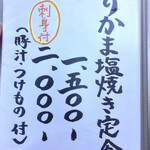 りかま塩焼き定食
一、五〇〇ー
刺身付
二、〇〇〇ー
(豚汁・つけもの 付)